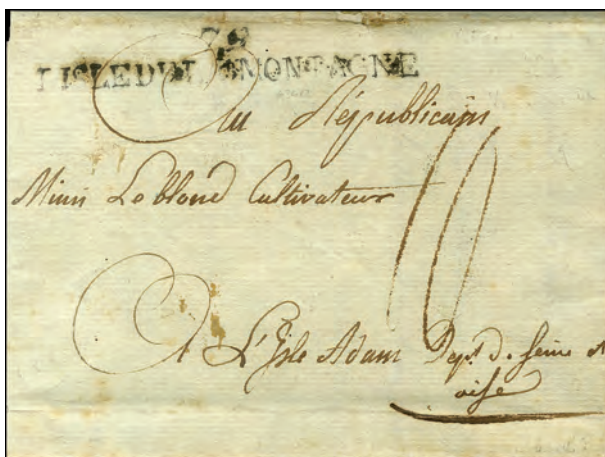 72
LISLEDELAMONTAGNE
Au Républicain
Leblond Cultivateur
10
A L'Isle Adam Dept. de Seine et
oise